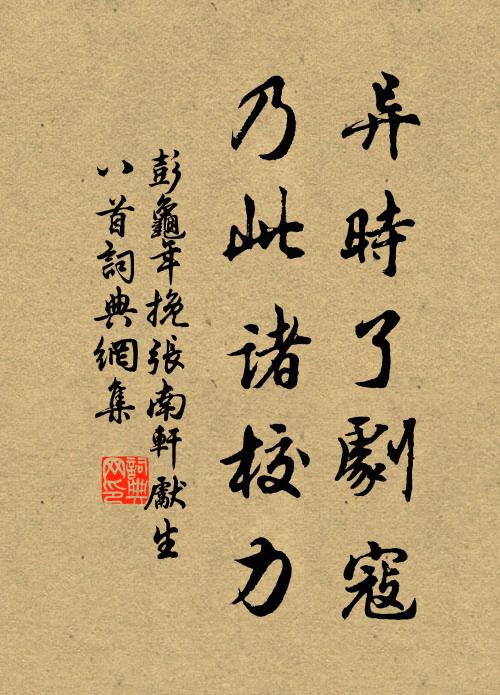 异時了劇寇
乃此諸校力
彭龜年挽張南軒獻生
八首詞典網集
詞典
网印